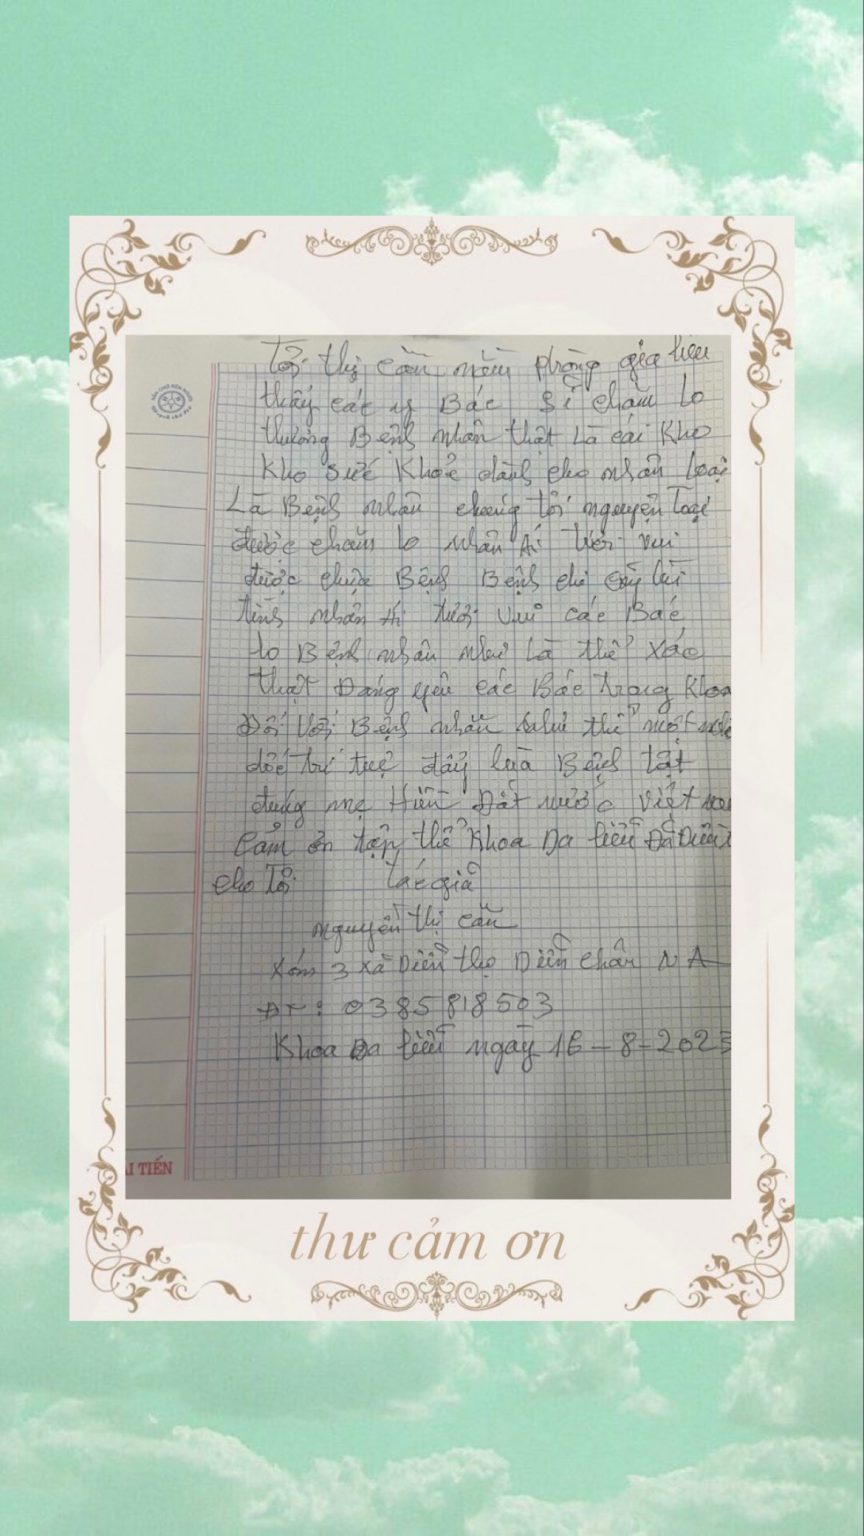 Tôi thị Căn nằm phòng gia liễu
thấy các y Bác Sĩ chăm Lo
thương Bệnh nhân thật Là cái Kho
Kho sức Khoẻ dành cho nhân loại
Là Bệnh nhân chúng tôi nguyện
được chăm lo nhân Ái tươi vui
được chữa Bệnh Bệnh chi
tình nhân Ái tươi vui các Bác
lo Bệnh nhân như Là thể xác
thật Đáng yêu các Bác trong Khoa
Đối Với Bệnh nhân như thể một
dốc trí tuệ đẩy lựa Bệnh tật
đúng mẹ Hiền Đất nước Việt
Cảm ơn tập thể Khoa Da liễu Đã Điều
cho Tôi
Tác giả
Nguyễn thị Căn
Xóm 3 xã Diễn thọ Diễn Châu N A
ĐT: 0385818503
Khoa Da liễu ngày 16-8-2023
ẢI TIẾN
thư cảm ơn